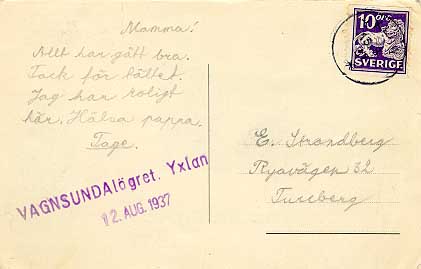 Mamma!
Allt har gått bra.
Tack för bältet.
Jag har roligt
här. Hälsa pappa.
Tage.
VAGNSUNDAlögret. Yxlan
12. AUG. 1937
10 ÖRE
SVERIGE
E. Strandberg
Ryavägen 32
Tureberg